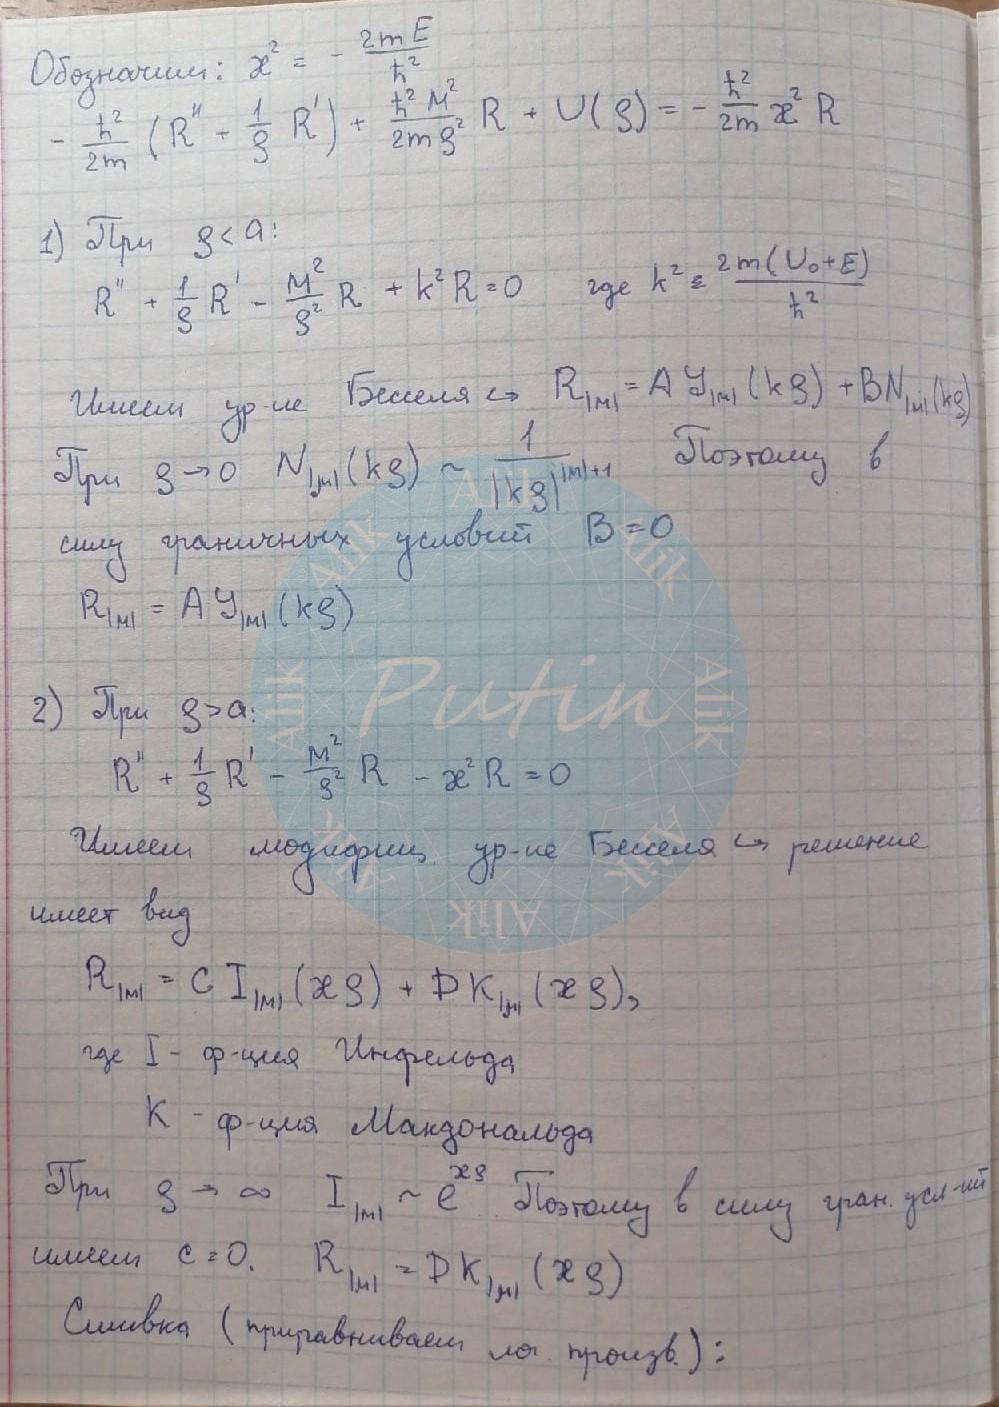 Обозначим: ϰ² = - 2mE/ħ²
- ħ²/2m (R'' + 1/ρ R') + ħ²M²/2mρ² R + U(ρ) = - ħ²/2m ϰ² R
1) При ρ < a:
R'' + 1/ρ R' - M²/ρ² R + k²R = 0 где k² = 2m(U₀+E)/ħ²
Имеем ур-ие Бесселя ↪ R|M| = A J|M| (kρ) + B N|M| (kρ)
При ρ → 0 N|M| (kρ) ~ 1/|kρ|^(|M|+1) Поэтому в
силу граничных условий B = 0
R|M| = A J|M| (kρ)
2) При ρ > a:
R'' + 1/ρ R' - M²/ρ² R - ϰ²R = 0
Имеем модифиц. ур-ие Бесселя ↪ решение
имеет вид
R|M| = C I|M| (ϰρ) + D K|M| (ϰρ),
где I - ф-ция Инфельда
K - ф-ция Макдональда
При ρ → ∞ I|M| ~ e^(ϰρ). Поэтому в силу гран. усл-ий
имеем C = 0. R|M| = D K|M| (ϰρ)
Сшивка (приравниваем лог. произв.):
Alik Alik Alik Alik Alik Alik Alik Alik
Putin